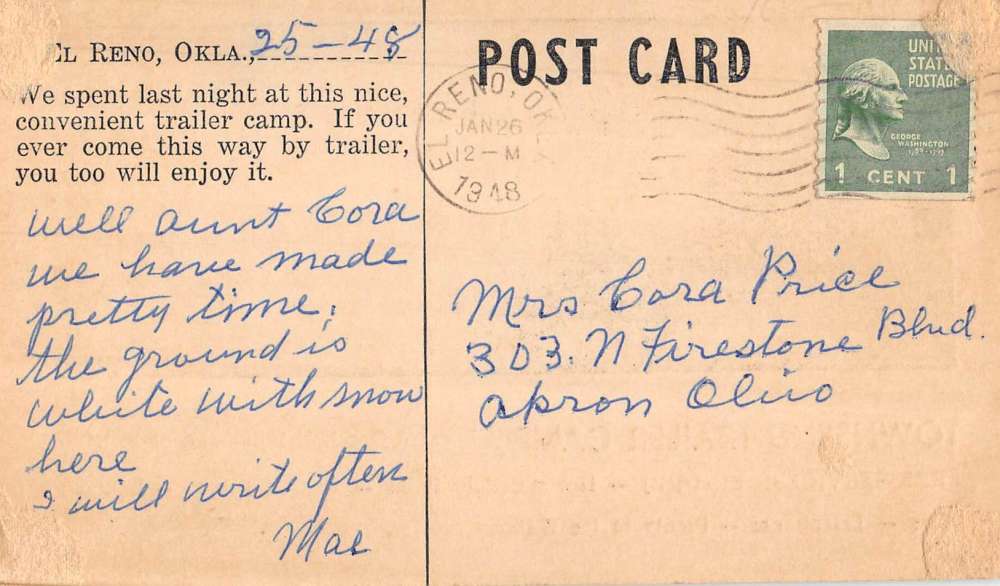 EL RENO, OKLA., 25-48
We spent last night at this nice,
convenient trailer camp. If you
ever come this way by trailer,
you too will enjoy it.
well aunt Cora
we have made
pretty time.
the ground is
white with snow
here
I will write often
Mae
POST CARD
EL RENO, OK
JAN 26
12 - M
1948
UNITED
STATES
POSTAGE
GEORGE
WASHINGTON
1789-1797
1 CENT 1
Mrs Cora Price
303. N Firestone Blvd.
akron Ohio